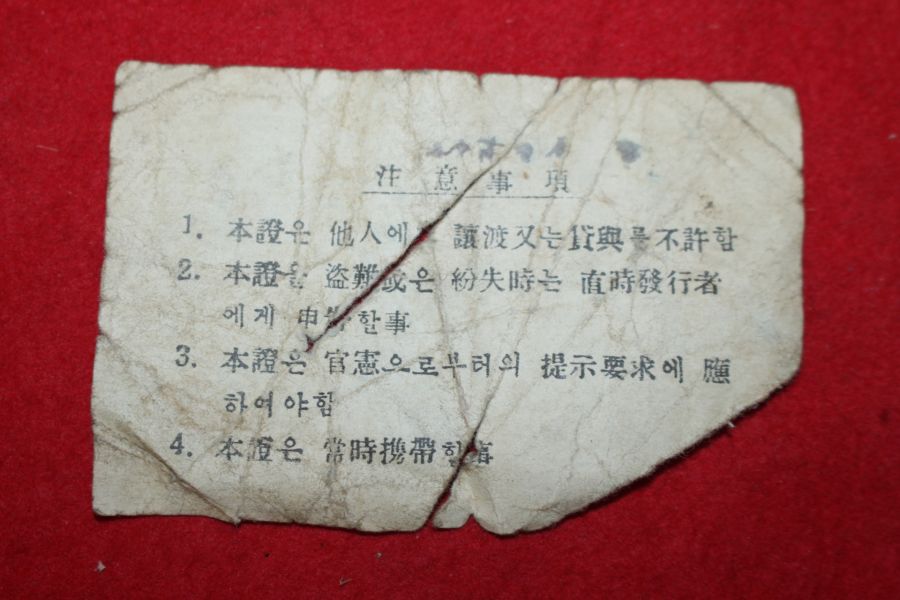 注意事項
1. 本證은 他人에 讓渡又는 貸與를 不許함
2. 本證을 盜難或은 紛失時는 直時發行者
에게 申告할事
3. 本證은 官憲으로부터의 提示要求에 應
하여야함
4. 本證은 常時携帶할事